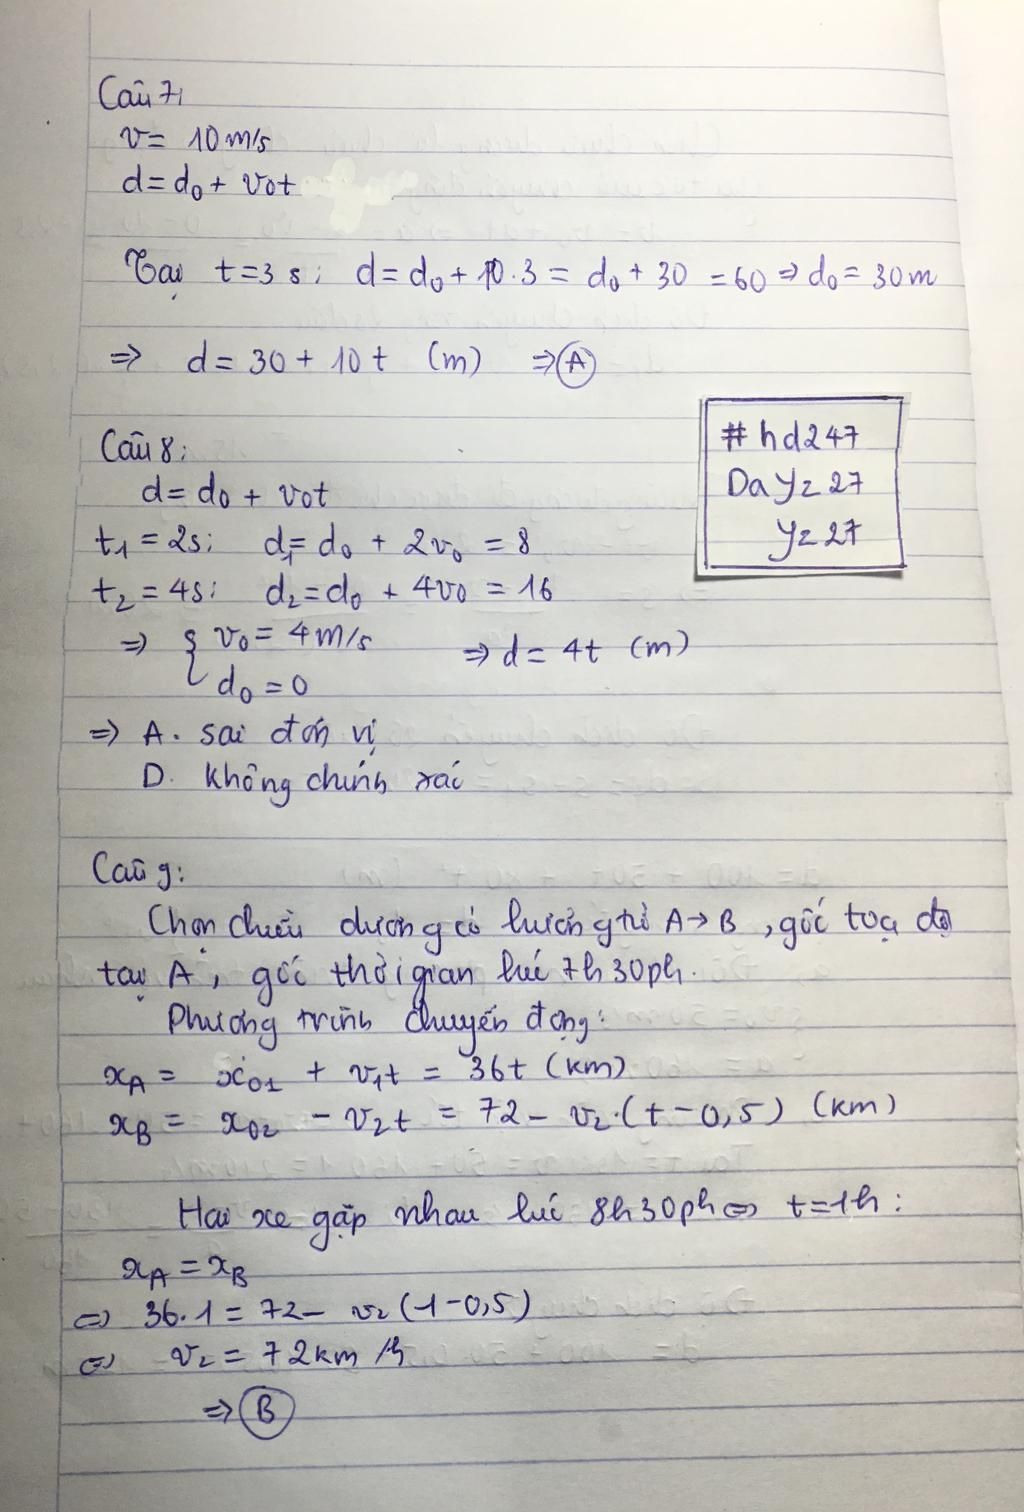 Câu 7:
v = 10 m/s
d = d₀ + v₀t
Tại t = 3 s: d = d₀ + 10.3 = d₀ + 30 = 60 => d₀ = 30 m
=> d = 30 + 10 t (m) => A
Câu 8:
d = d₀ + v₀t
t₁ = 2s: d₁ = d₀ + 2v₀ = 8
t₂ = 4s: d₂ = d₀ + 4v₀ = 16
=> { v₀ = 4 m/s => d = 4t (m)
d₀ = 0
=> A. sai đơn vị
D. không chính xác
#hd247
DaYz27
Yz27
Câu 9:
Chọn chiều dương có hướng từ A → B, gốc toạ độ
tại A, gốc thời gian lúc 7h30ph.
Phương trình chuyển động:
x_A = x₀₁ + v₁t = 36t (km)
x_B = x₀₂ - v₂t = 72 - v₂.(t - 0,5) (km)
Hai xe gặp nhau lúc 8h30ph <=> t = 1h:
x_A = x_B
<=> 36.1 = 72 - v₂ (1 - 0,5)
<=> v₂ = 72 km/h
=> B